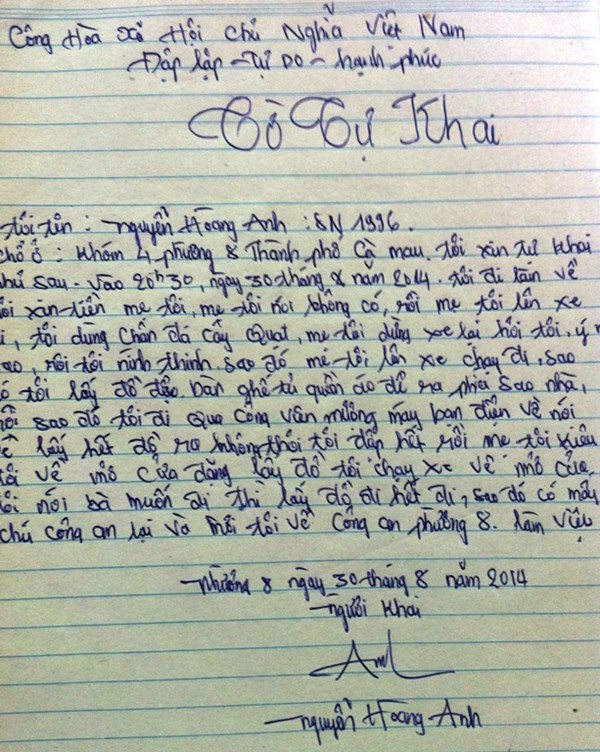 Công Hoà Xã Hội Chủ Nghĩa Việt Nam
Độp lập - Tự Do - hạnh phúc
Cờ Tự Khai
tôi tên : nguyễn Hoàng Anh : SN 1996.
chổ ở : Khóm 4 phường 8 Thành phố Cà mau. tôi xin tự khai
như sau. vào 20h30, ngày 30 tháng 8 năm 2014. tôi đi làm về
tôi xin tiền mẹ tôi, mẹ tôi nói không có, rồi mẹ tôi lên xe
đi, tôi dùng chân đá cây quạt, mẹ tôi dừng xe lại hỏi tôi, ý m
sao, rồi tôi nính thinh. sao đó, mẹ tôi lên xe chạy đi, sao
đó tôi lấy đồ đạo. bàn ghế tủ quần áo để ra phía sao nhà,
rồi sao đó tôi đi qua công vân mướng mấy bạn diễn về nói
về lấy hết đồ ra không thôi tôi dẫn hết rồi mẹ tôi kiêu
tôi về mở cửa đàng lấy đồ tôi chạy xe về mở cửa,
tôi nói bà muốn đi thì lấy đồ đi hết đi, sao đó có mấy
chú công an lại và mời tôi về công an phường 8. làm việc
phường 8 ngày 30 tháng 8 năm 2014
người khai
Anh
nguyễn Hoàng Anh